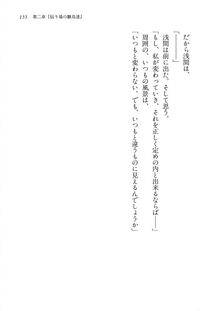 155　第二章『伝り場の観点達』
だから浅間は、
浅間は前に出た。そして思う。
「もし、私が変わっていき、それを正しく定めの内と出来るならば──」
周囲の、いつもの風景は、
「いつもと変わらない、でも、いつものものに見えるんでしょうか」